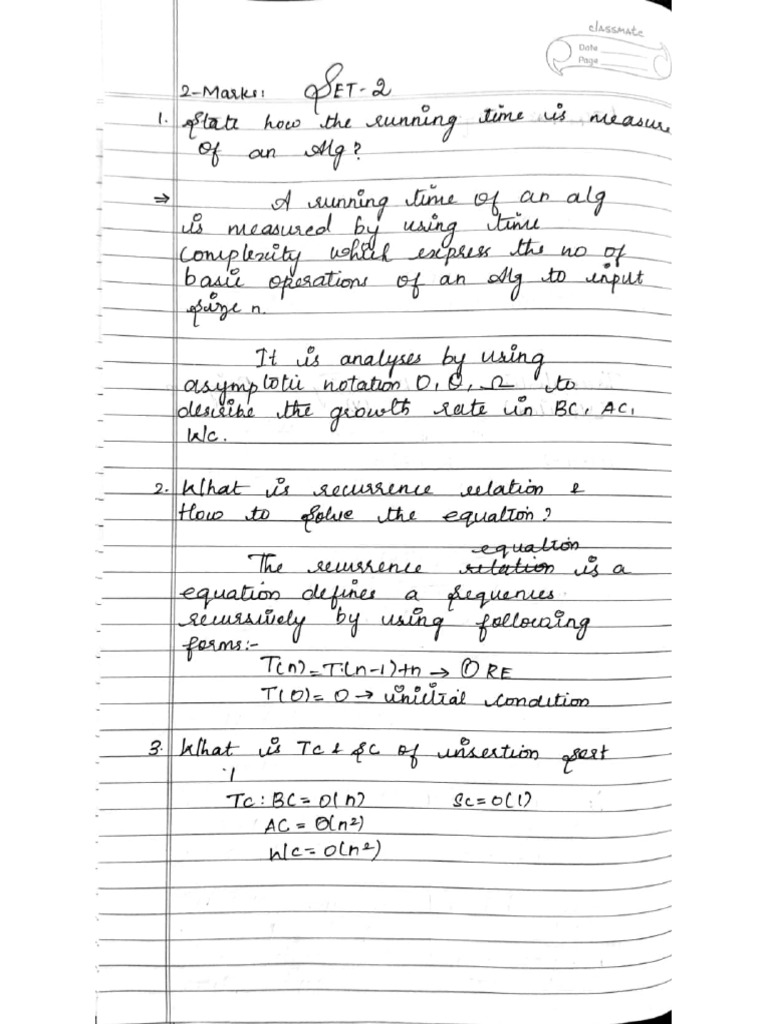 classmate
Date
Page
2-Marks: SET-2
1. State how the running time is measure
of an Alg?
⇒ A running time of an alg
is measured by using time
complexity which express the no of
basic operations of an Alg to input
size n.
It is analyses by using
asymptotic notation O, Θ, Ω to
describe the growth rate in BC, AC,
WC.
2. What is recurrence relation &
How to solve the equation?
equation
The recurrence relation is a
equation defines a sequences
recursively by using following
forms:-
T(n)=T(n-1)+n → ① RE
T(0)=0 → initial condition
3. What is TC & SC of insertion sort
TC: BC=O(n) SC=O(1)
AC=Θ(n²)
WC=O(n²)